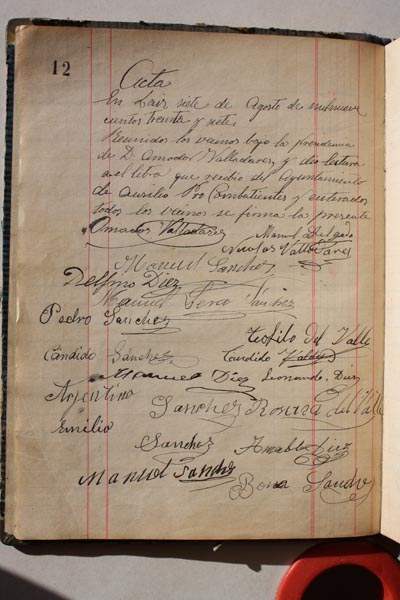 12
Acta
En Lair siete de Agosto de mil nueve
cientos treinta y siete
Reunidos los vecinos bajo la presidencia
de D. Amador Valladares, y dio lectura
a el libro que recibio del Ayuntamiento
de Auxilio Pro Combatientes y enterados
todos los vecinos se firma la presente
Amador Valladares Manuel Delgado
Nicolas Valladares
Manuel Sanchez
Delfino Diez
Manuel Pera Sánchez
Pedro Sanchez
Teofilo del Valle
Cándido Sánchez Candido Valdes
Manuel Diez Fernando Diez
Argentino
Sanchez Rosura del Valle
Emilio
Sanchez Amable Diez
Manuel Sanchez
Bona Sanchez